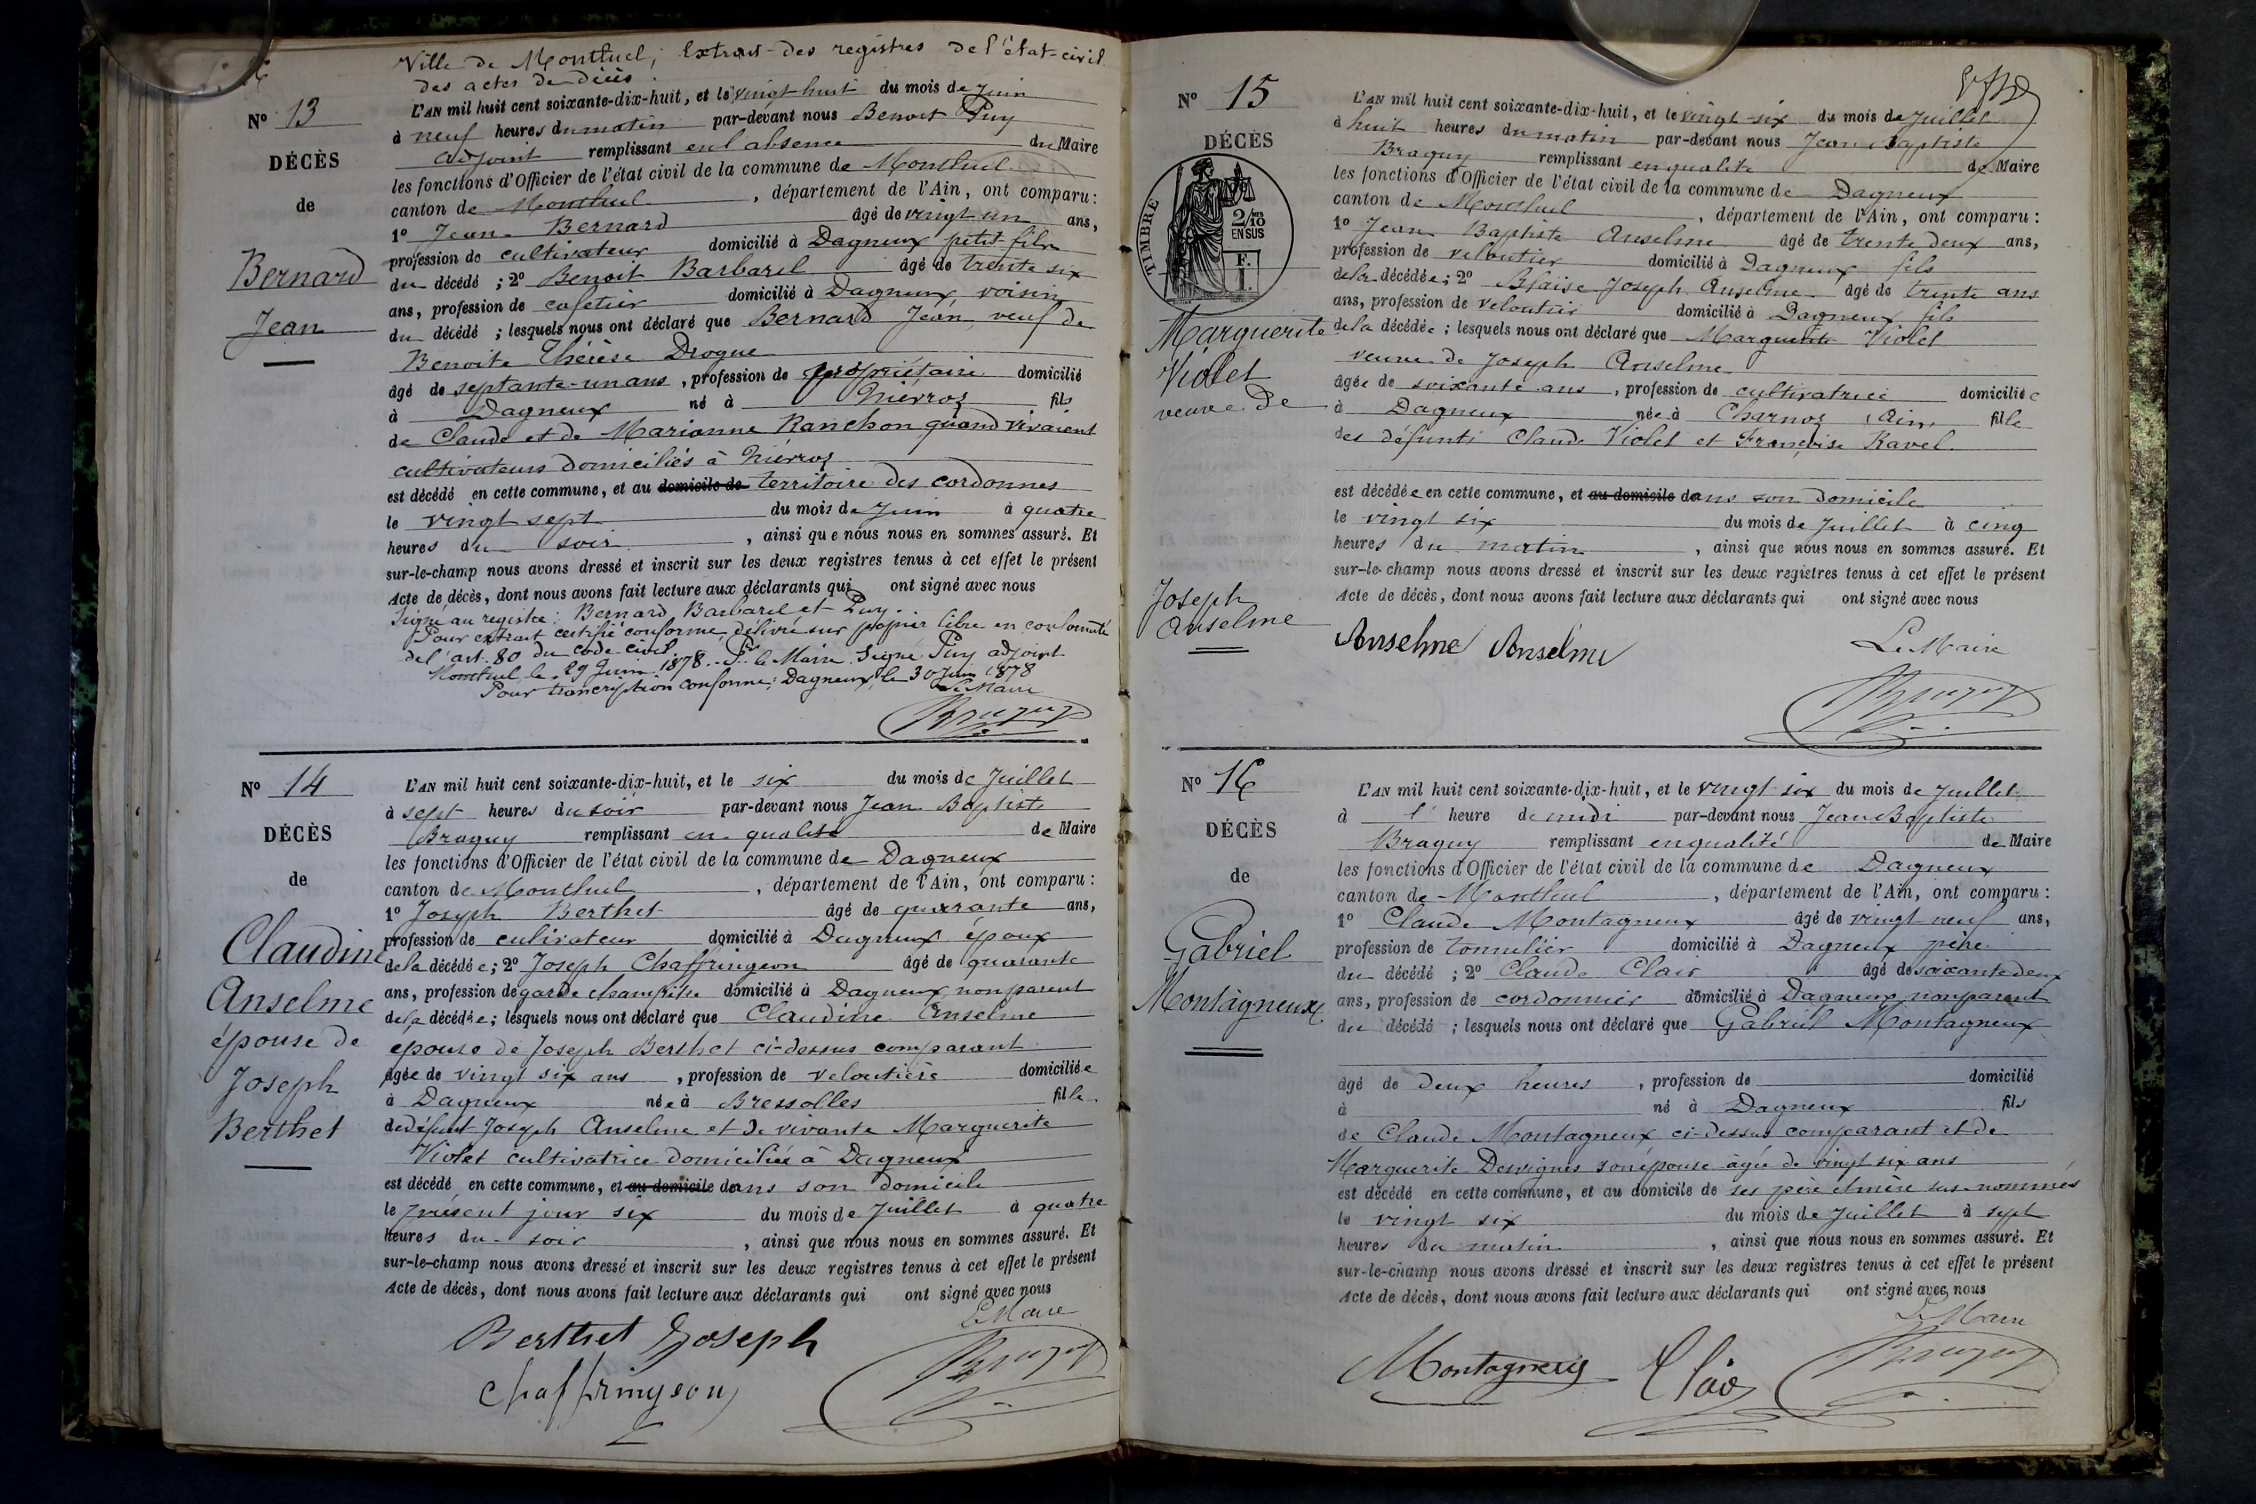 Ville de Montluel, Extrait des registres de l'état-civil
des actes de décès.
N° 13
DÉCÈS
de
Bernard
Jean
L'AN mil huit cent soixante-dix-huit, et le vingt huit du mois de Juin
à neuf heures du matin par-devant nous Benoit Puy
adjoint remplissant en l'absence du Maire
les fonctions d'Officier de l'état civil de la commune de Montluel
canton de Montluel, département de l'Ain, ont comparu:
1° Jean Bernard âgé de vingt un ans,
profession de cultivateur domicilié à Dagneux petit-fils
du décédé; 2° Benoit Barbarel âgé de trente six
ans, profession de cafetier domicilié à Dagneux, voisin
du décédé; lesquels nous ont déclaré que Bernard Jean, veuf de
Benoite Thérèse Drogue
âgé de septante-un ans, profession de propriétaire domicilié
à Dagneux né à Niévroz fils
de Claude et de Marianne Ranchon quand vivaient
cultivateurs domiciliés à Niévroz
est décédé en cette commune, et au domicile de territoire des cordonnes
le vingt sept du mois de Juin à quatre
heures du soir, ainsi que nous nous en sommes assuré. Et
sur-le-champ nous avons dressé et inscrit sur les deux registres tenus à cet effet le présent
Acte de décès, dont nous avons fait lecture aux déclarants qui ont signé avec nous
Signé au registre: Bernard, Barbarel et Puy.
Pour extrait certifié conforme, délivré sur papier libre en conformité
de l'art. 80 du code civil.
Montluel, le 29 Juin 1878. Pr le Maire Signé Puy adjoint
Pour transcription conforme: Dagneux, le 30 Juin 1878
Le Maire
Braguy
N° 14
DÉCÈS
de
Claudine
Anselme
épouse de
Joseph
Berthet
L'AN mil huit cent soixante-dix-huit, et le six du mois de Juillet
à sept heures du soir par-devant nous Jean Baptiste
Braguy remplissant en qualité de Maire
les fonctions d'Officier de l'état civil de la commune de Dagneux
canton de Montluel, département de l'Ain, ont comparu:
1° Joseph Berthet âgé de quarante ans,
profession de cutivateur domicilié à Dagneux époux
de la décédée; 2° Joseph Chaffringeon âgé de quarante
ans, profession de garde champêtre domicilié à Dagneux, non parent
de la décédée; lesquels nous ont déclaré que Claudine Anselme
épouse de Joseph Berthet ci-dessus comparant
âgée de vingt six ans, profession de veloutière domiciliée
à Dagneux née à Bressolles fille
de défunt Joseph Anselme et de vivante Marguerite
Violet cultivatrice domiciliée à Dagneux
est décédé en cette commune, et au domicile dans son domicile
le présent jour six du mois de Juillet à quatre
heures du soir, ainsi que nous nous en sommes assuré. Et
sur-le-champ nous avons dressé et inscrit sur les deux registres tenus à cet effet le présent
Acte de décès, dont nous avons fait lecture aux déclarants qui ont signé avec nous
Le Maire
Berthet Joseph
Chaffringeon
Braguy
N° 15
DÉCÈS
TIMBRE
2/10
EN SUS
F.
1.
Marguerite
Violet
veuve de
Joseph
Anselme
L'AN mil huit cent soixante-dix-huit, et le vingt-six du mois de Juillet
à huit heures du matin par-devant nous Jean Baptiste
Braguy remplissant en qualité de Maire
les fonctions d'Officier de l'état civil de la commune de Dagneux
canton de Montluel, département de l'Ain, ont comparu:
1° Jean Baptiste Anselme âgé de trente deux ans,
profession de veloutier domicilié à Dagneux fils
de la décédée; 2° Blaise Joseph Anselme âgé de trente ans
ans, profession de veloutier domicilié à Dagneux fils
de la décédée; lesquels nous ont déclaré que Marguerite Violet
veuve de Joseph Anselme
âgée de soixante ans, profession de cultivatrice domiciliée
à Dagneux née à Charnoz, Ain, fille
des défunts Claude Violet et Françoise Ravel
est décédée en cette commune, et au domicile dans son domicile
le vingt six du mois de Juillet à cinq
heures du matin, ainsi que nous nous en sommes assuré. Et
sur-le-champ nous avons dressé et inscrit sur les deux registres tenus à cet effet le présent
Acte de décès, dont nous avons fait lecture aux déclarants qui ont signé avec nous
Anselme Anselme
Le Maire
Braguy
N° 16
DÉCÈS
de
Gabriel
Montagneux
L'AN mil huit cent soixante-dix-huit, et le vingt six du mois de Juillet
à l' heure de midi par-devant nous Jean Baptiste
Braguy remplissant en qualité de Maire
les fonctions d'Officier de l'état civil de la commune de Dagneux
canton de Montluel, département de l'Ain, ont comparu:
1° Claude Montagneux âgé de vingt neuf ans,
profession de tonnelier domicilié à Dagneux père
du décédé; 2° Claude Clair âgé de soixante deux
ans, profession de cordonnier domicilié à Dagneux, non parent
du décédé; lesquels nous ont déclaré que Gabriel Montagneux
âgé de deux heures, profession de domicilié
à né à Dagneux fils
de Claude Montagneux ci-dessus comparant et de
Marguerite Desvignes son épouse âgée de vingt six ans
est décédé en cette commune, et au domicile de ses père et mère sus-nommés
le vingt six du mois de Juillet à sept
heures du matin, ainsi que nous nous en sommes assuré. Et
sur-le-champ nous avons dressé et inscrit sur les deux registres tenus à cet effet le présent
Acte de décès, dont nous avons fait lecture aux déclarants qui ont signé avec nous
Le Maire
Montagneux Clair
Braguy